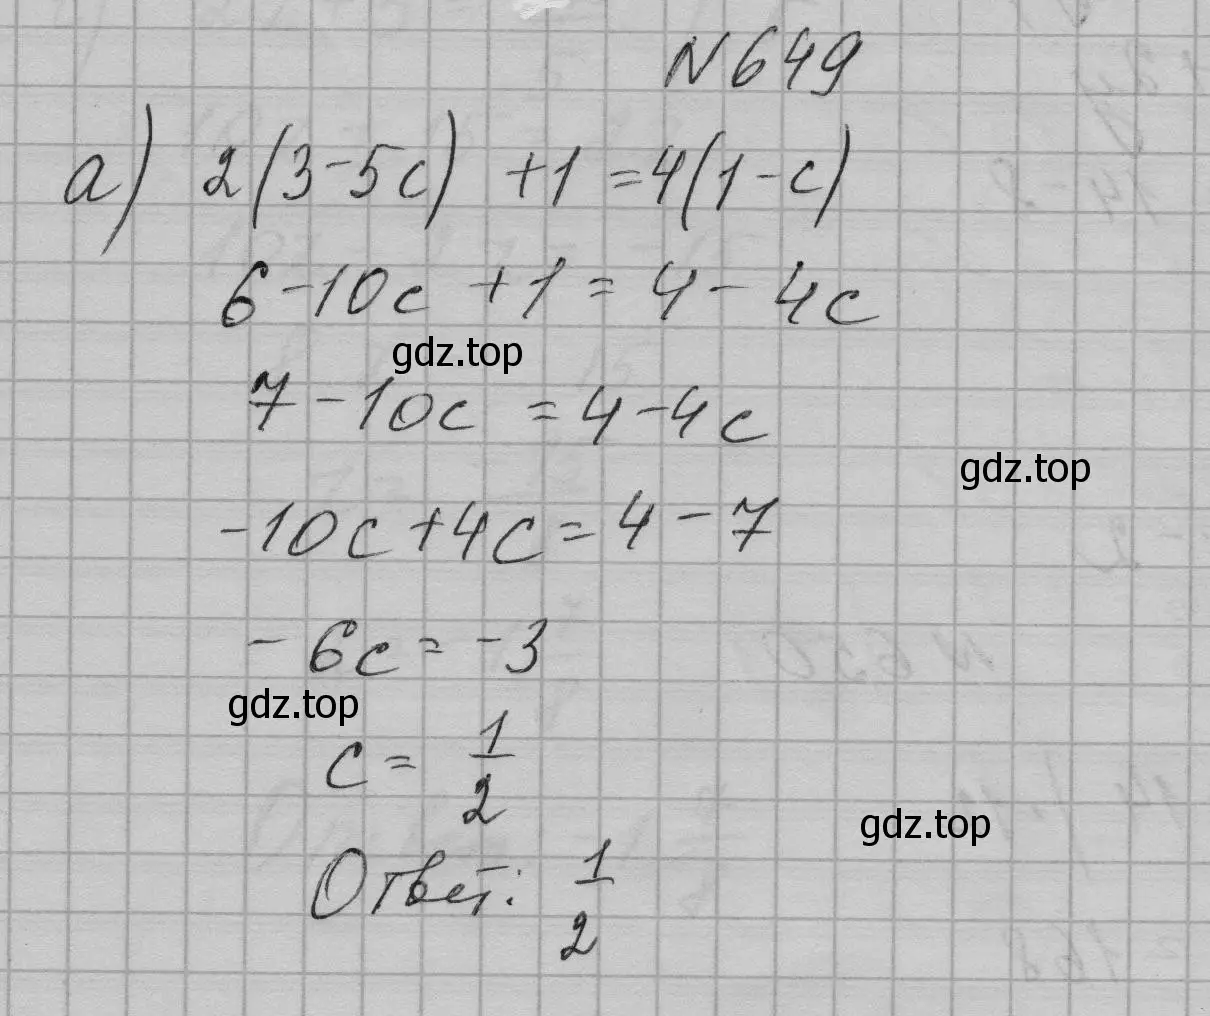 N 649
а) 2(3-5c) +1 =4(1-c)
6-10c +1 = 4 - 4c
gdz.top
7 -10c = 4 -4c
gdz.top
-10c +4c = 4 - 7
- 6c = -3
gdz.top
c = 1/2
gdz.top
Ответ: 1/2